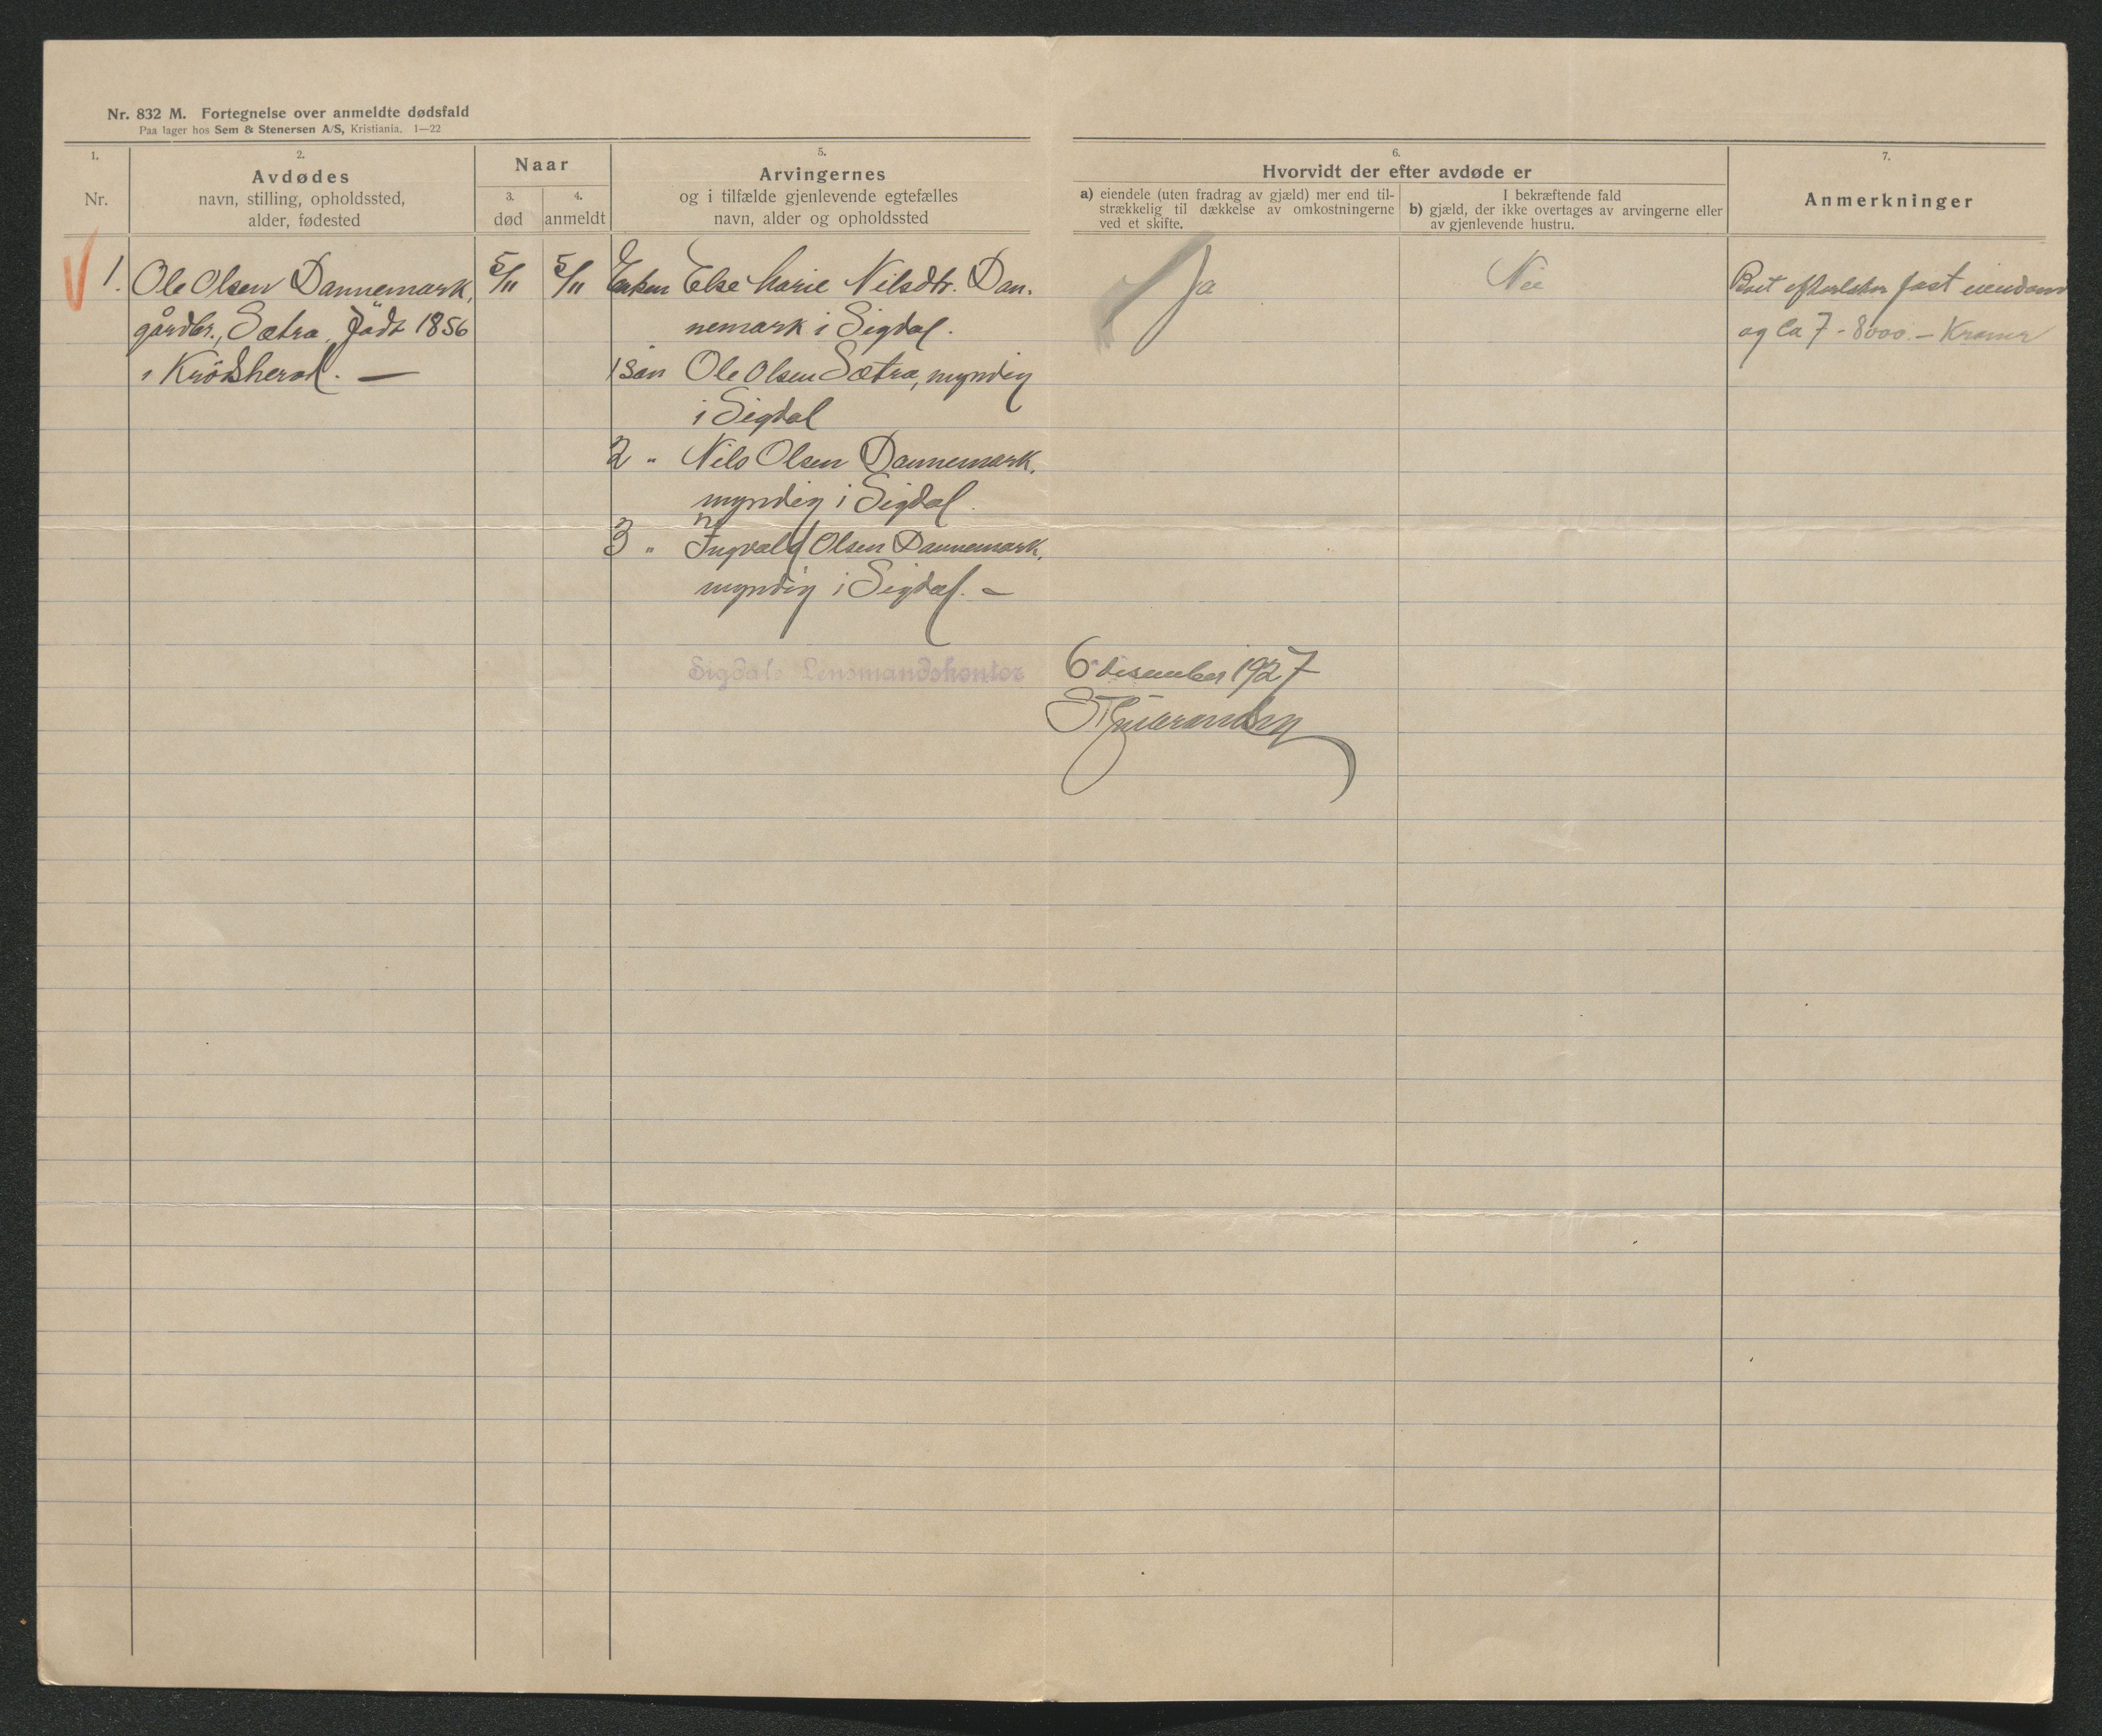 Nr. 832 M. Fortegnelse over anmeldte dødsfald
Paa lager hos Sem & Stenersen A/S, Kristiania. 1—22
1.
Nr.
2.
Avdødes
navn, stilling, opholdssted,
alder, fødested
Naar
3.
død
4.
anmeldt
5.
Arvingernes
og i tilfælde gjenlevende egtefælles
navn, alder og opholdssted
6.
Hvorvidt der efter avdøde er
a) eiendele (uten fradrag av gjæld) mer end til-
strækkelig til dækkelse av omkostningerne
ved et skifte.
I bekræftende fald
b) gjæld, der ikke overtages av arvingerne eller
av gjenlevende hustru.
7.
Anmerkninger
1.
Ole Olsen Dannemark,
gårdbr., Sætra, født 1856
i Krödsherad. —
5/11
5/11
Enken Else Marie Nilsdtr. Dan-
nemark i Sigdal.
1 Sön Ole Olsen Sætra, myndig
i Sigdal
2 " Nils Olsen Dannemark,
myndig i Sigdal.
3 " Ingvald Olsen Dannemark,
myndig i Sigdal. —
Ja
Nei
Boet efterlater fast eiendom
og ca 7-8000.— Kroner
Sigdals Lensmandskontor 6 desember 1927